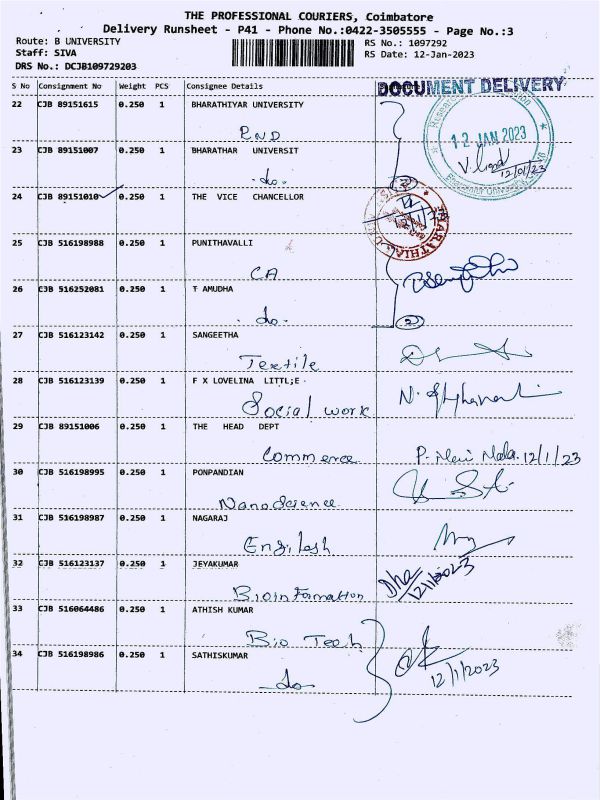 THE PROFESSIONAL COURIERS, Coimbatore
Delivery Runsheet - P41 - Phone No.:0422-3505555 - Page No.:3
Route: B UNIVERSITY
RS No.: 1097292
Staff: SIVA
RS Date: 12-Jan-2023
DRS No.: DCJB109729203
S No Consignment No Weight PCS Consignee Details
DOCUMENT DELIVERY
22 CJB 89151615 0.250 1 BHARATHIYAR UNIVERSITY
RND
12 JAN 2023
23 CJB 89151007 0.250 1 BHARATHAR UNIVERSIT
do
12/01/23
24 CJB 89151010 0.250 1 THE VICE CHANCELLOR
25 CJB 516198988 0.250 1 PUNITHAVALLI
CA
26 CJB 516252081 0.250 1 T AMUDHA
do
27 CJB 516123142 0.250 1 SANGEETHA
Textile
28 CJB 516123139 0.250 1 F X LOVELINA LITTL;E
Social work
29 CJB 89151006 0.250 1 THE HEAD DEPT
Commerce
12/1/23
30 CJB 516198995 0.250 1 PONPANDIAN
Nanoscience
31 CJB 516198987 0.250 1 NAGARAJ
Englesh
32 CJB 516123137 0.250 1 JEYAKUMAR
Bioinformation
12/1/2023
33 CJB 516064486 0.250 1 ATHISH KUMAR
Bio Tech
34 CJB 516198986 0.250 1 SATHISKUMAR
do
12/1/2023